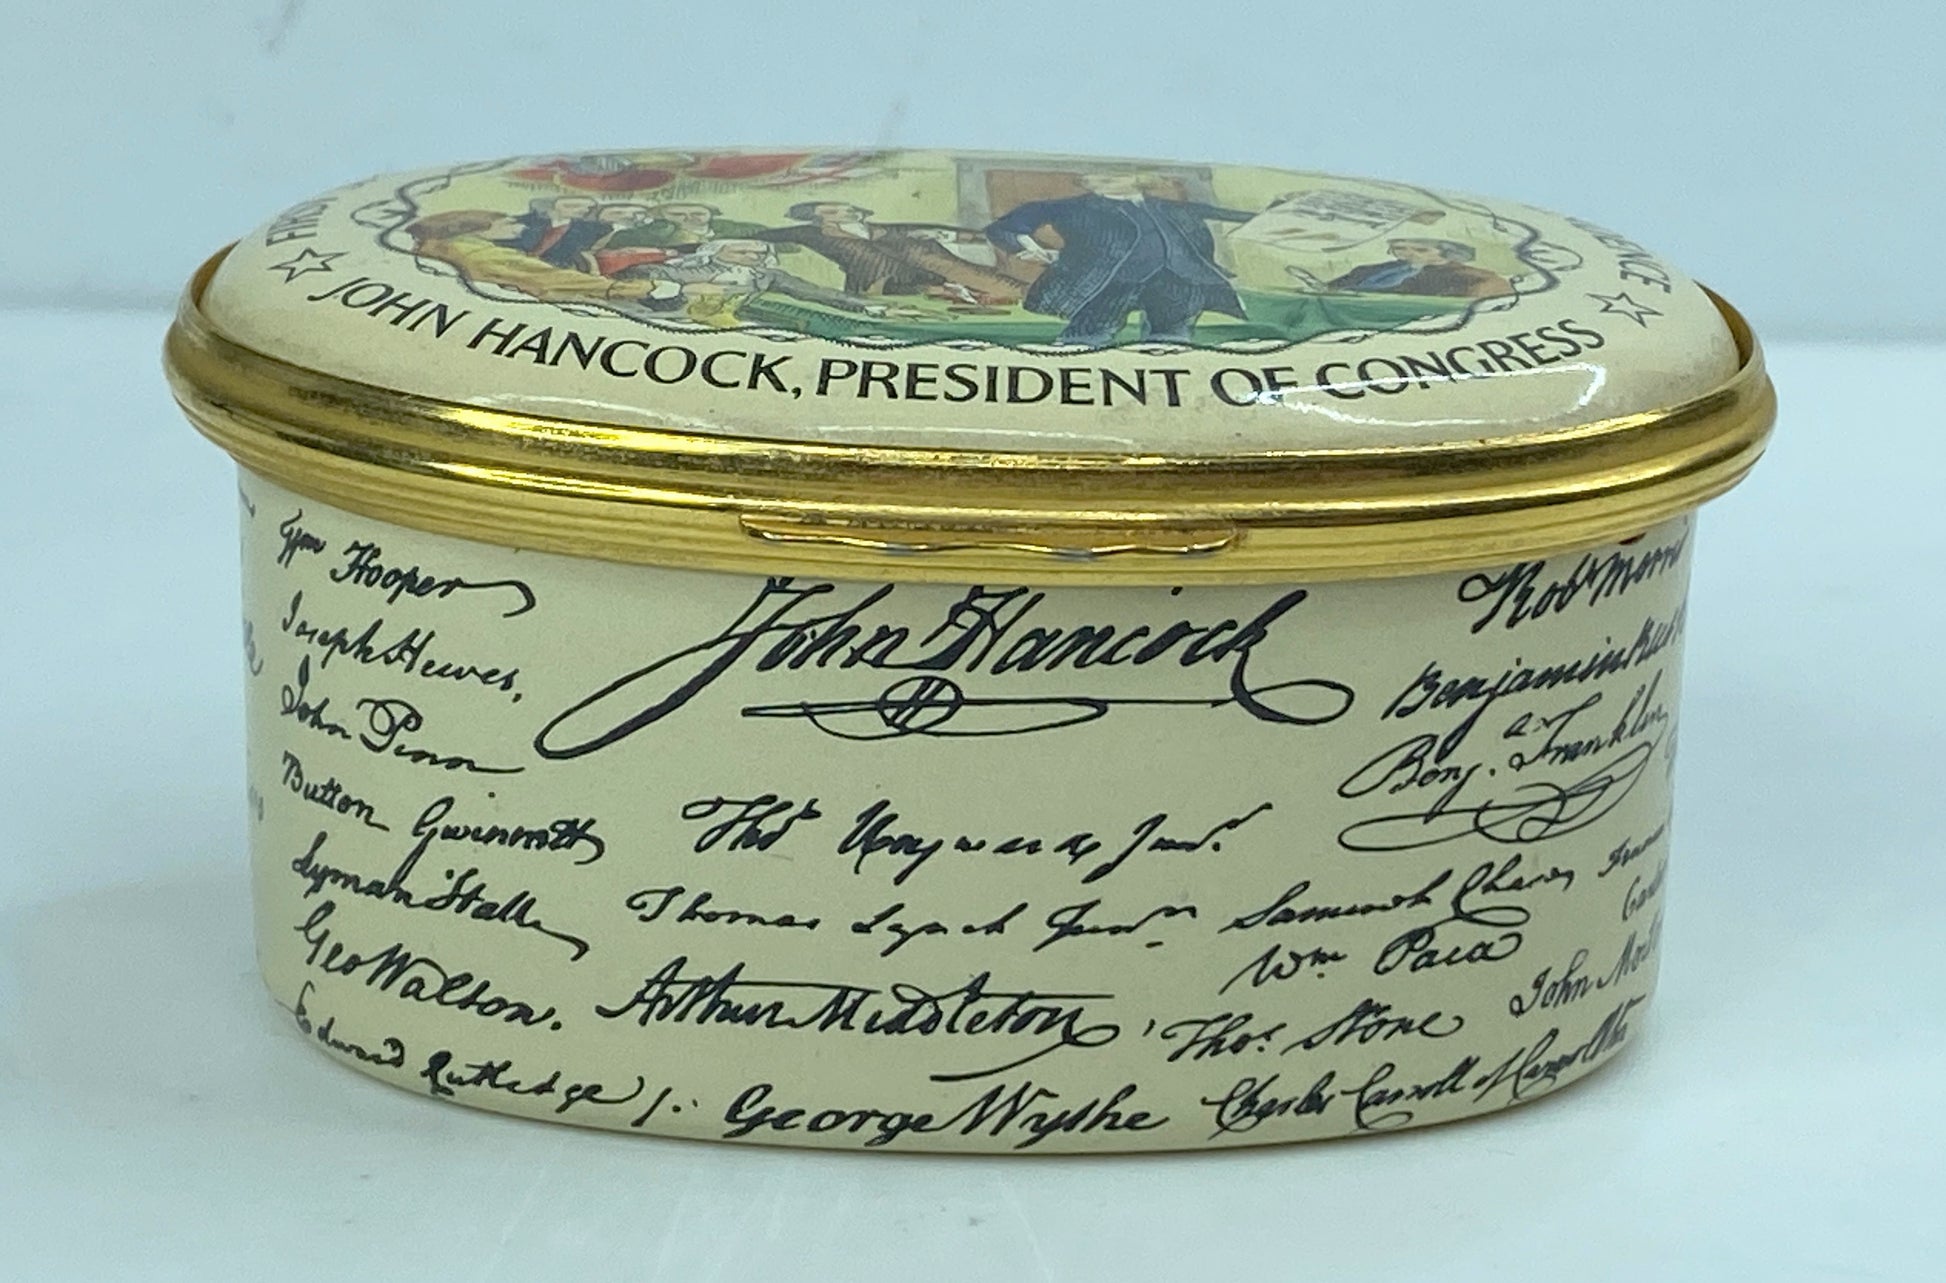 JOHN HANCOCK, PRESIDENT OF CONGRESS
Wm Hooper
Joseph Hewes,
John Penn
Button Gwinnett
Lyman Hall
Geo Walton.
Edward Rutledge /.
John Hancock
Thos Heyward Junr.
Thomas Lynch Junr.
Arthur Middleton
George Wythe
Robt Morris
Benjamin Rush
Benj. Franklin
Samuel Chase
Wm Paca
Thos. Stone
Charles Carroll of Carrollton
John